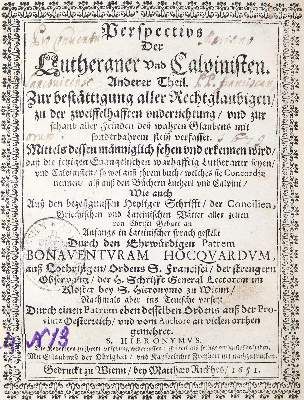 Perspectivs
Der
Lutheraner vnd Calvinisten.
Anderer Theil.
Zur bestättigung aller Rechtglaubigen/
zu der zweiffelhafften vnderrichtung / vnd zur
schand aller Feinden des wahren Glaubens mit
sonderbahrem fleiß verfasset.
Mittels dessen männiglich sehen vnd erkennen wird/
daß die jetzigen Evangelischen warhafftig Lutheraner seyen/
vnd Calvinisten / so wol auß ihrem buch / welches sie Concordiæ
nennen / als auß den Büchern Lutheri vnd Calvini /
Wie auch
Auß den Heyliger Schrifft / der Concilien,
Griechischen vnd Lateinischen Vätter aller zeiten
von Christi Geburt an
Anfangs in Lateinischer sprach gestelt
Durch den Ehrwürdigen Patrem
BONAVENTVRAM HOCQVARDVM
auß Lothringen / Ordens S. Francisci / der strengern
Observantz / der H. Schrifft General Lectorem im
Kloster bey S. Hieronymo zu Wienn /
Nachmals aber ins Teutsche versetzt
Durch einen Patrem eben desselben Ordens auß der Pro-
vintz Oesterreich / vnd vom Authore an vielen orthen
vermehret.
S. HIERONYMVS.
Mit Erlaubnuß der Obrigkeit / vnd Kayserlicher Freyheit nit nachzudrucken.
Gedruckt zu Wienn / bey Matthæo Rickhes / 1651.